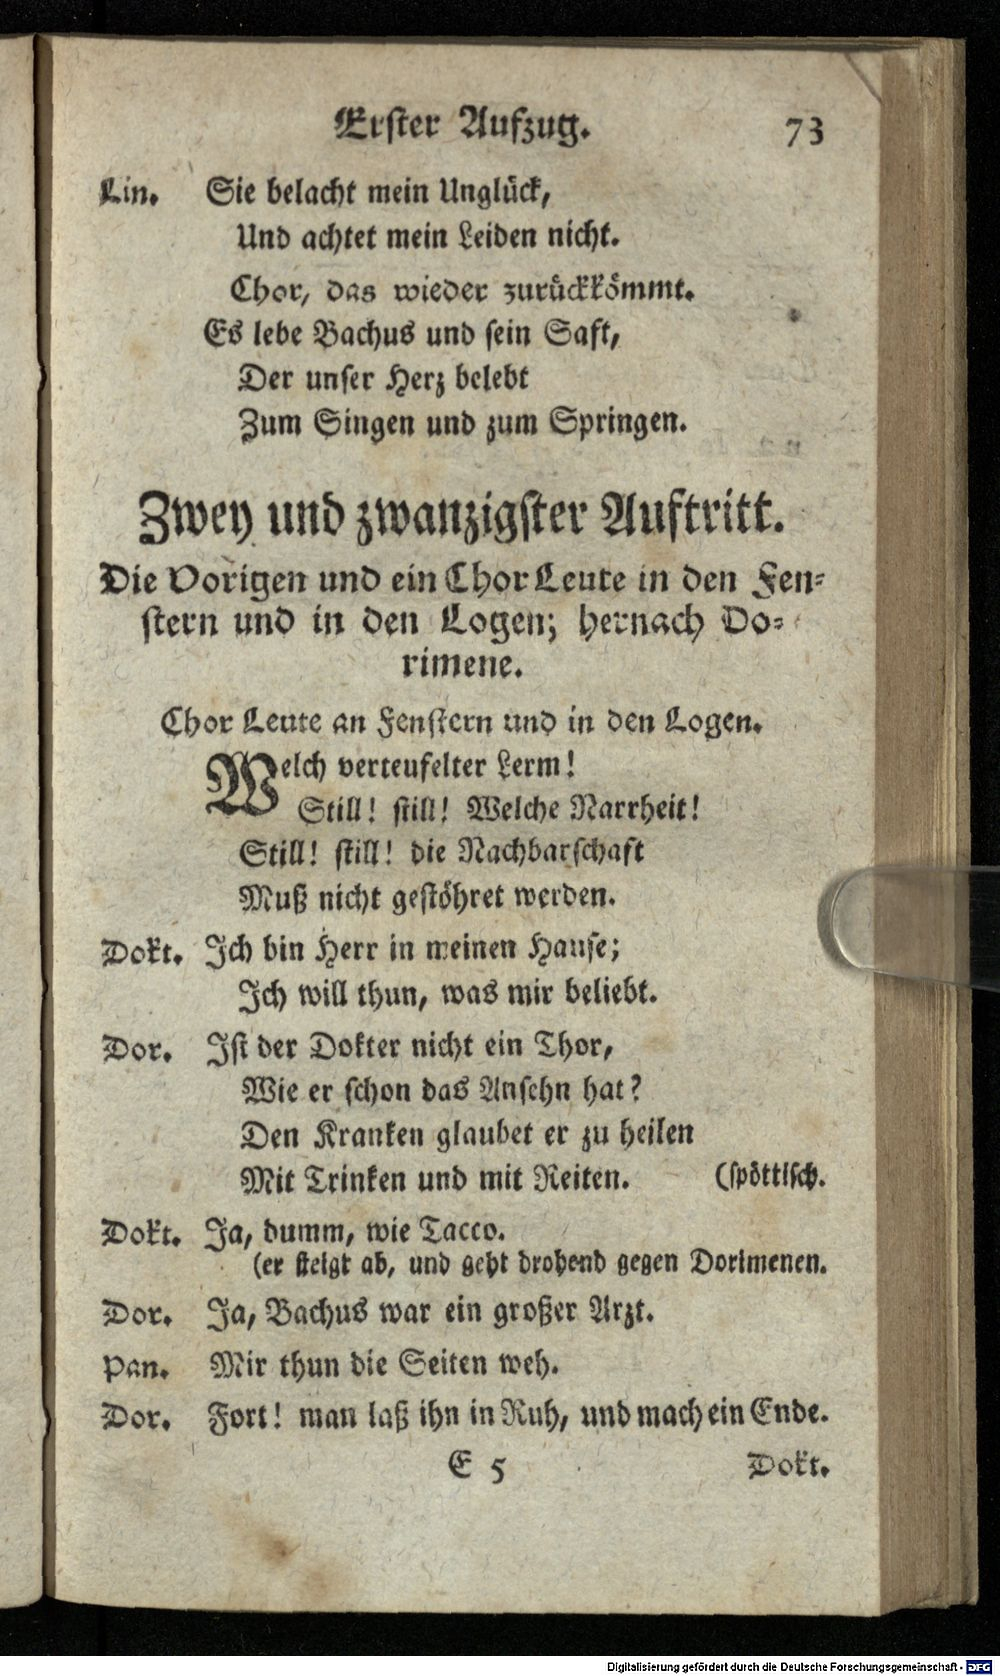 Erster Aufzug. 73
Lin. Sie belacht mein Unglück,
Und achtet mein Leiden nicht.
Chor, das wieder zurückkömmt.
Es lebe Bachus und sein Saft,
Der unser Herz belebt
Zum Singen und zum Springen.
Zwey und zwanzigster Auftritt.
Die Vorigen und ein Chor Leute in den Fen-
stern und in den Logen; hernach Do-
rimene.
Chor Leute an Fenstern und in den Logen.
Welch verteufelter Lerm!
Still! still! Welche Narrheit!
Still! still! die Nachbarschaft
Muß nicht gestöhret werden.
Dokt. Ich bin Herr in meinen Hause;
Ich will thun, was mir beliebt.
Dor. Ist der Dokter nicht ein Thor,
Wie er schon das Ansehn hat?
Den Kranken glaubet er zu heilen
Mit Trinken und mit Reiten. (spöttisch.
Dokt. Ja, dumm, wie Tacco.
(er steigt ab, und geht drohend gegen Dorimenen.
Dor. Ja, Bachus war ein großer Arzt.
Pan. Mir thun die Seiten weh.
Dor. Fort! man laß ihn in Ruh, und mach ein Ende.
E 5 Dokt.
Digitalisierung gefördert durch die Deutsche Forschungsgemeinschaft - DFG